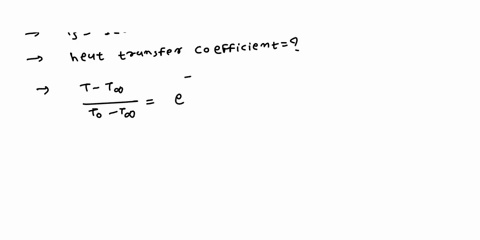 → heat transfer coefficient = ?
→ T - T∞ / T₀ - T∞ = e⁻